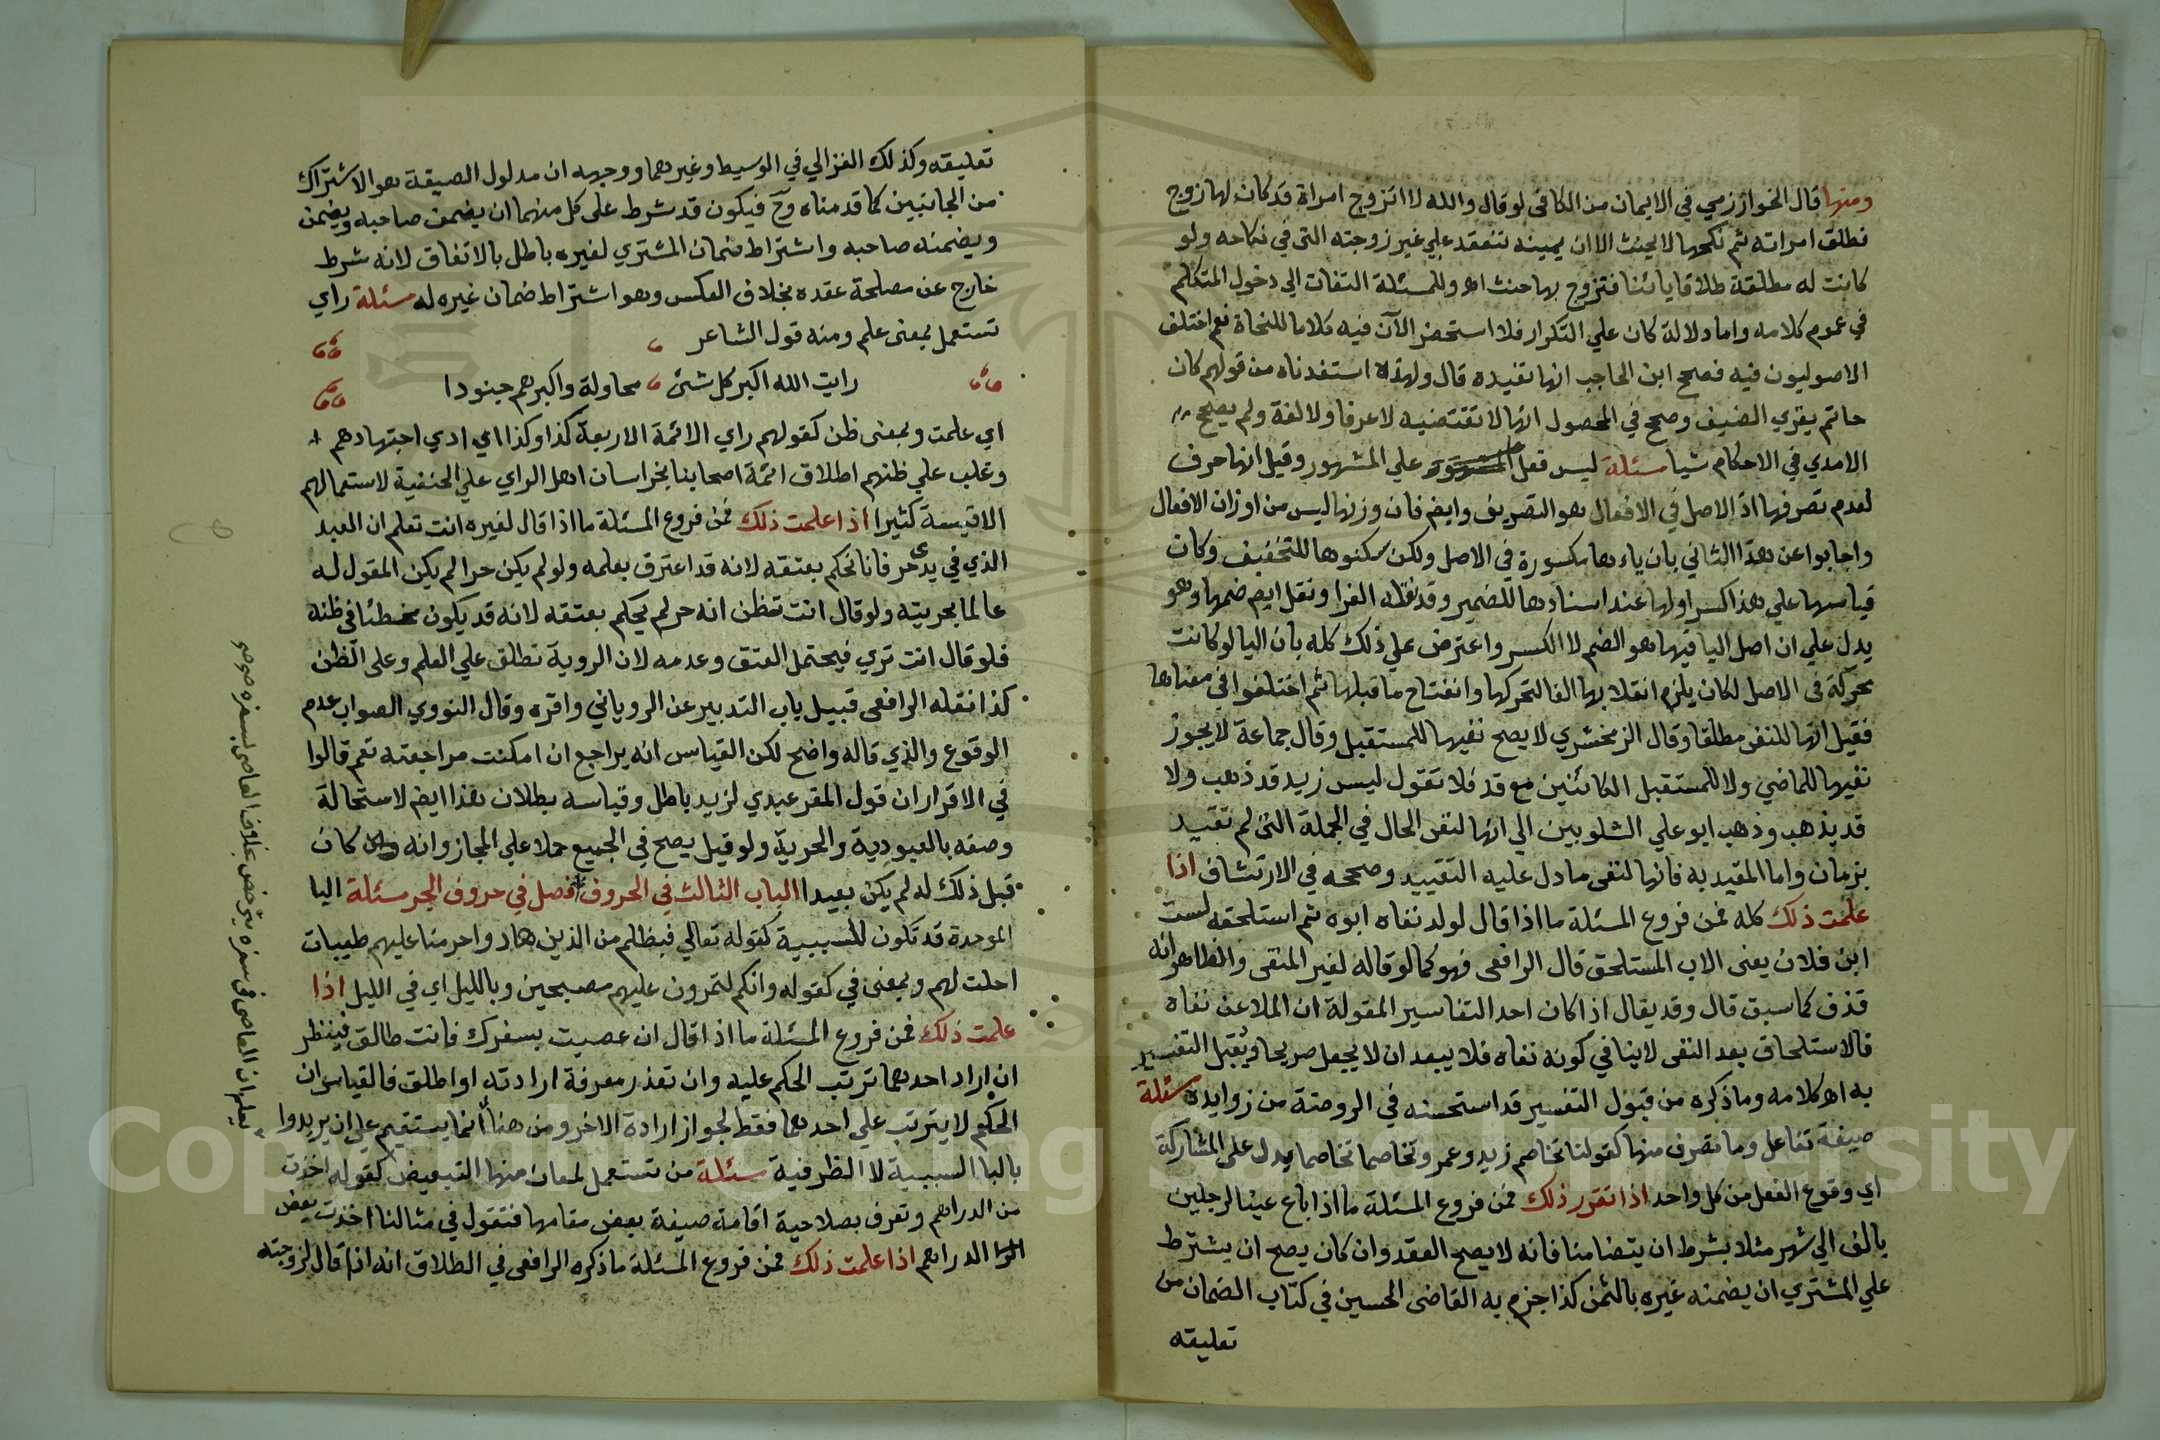 ومنها قال الخوارزمي في الايمان من الكافي لو قال والله لا اتزوج امراة قد كان لها زوج
فطلق امراته ثم نكحها لا يحنث الا ان يمينه تنعقد علي غير زوجته التي في نكاحه ولو
كانت له مطلقة طلاقا بائنا فتزوج بها حنث اه وللمسئلة التفات الي دخول المتكلم
في عموم كلامه واما دلالة كان علي التكرار فلا استحضر الآن فيه كلاما للنحاة نعم اختلف
الاصوليون فيه فصحح ابن الحاجب انها تفيده قال ولهذا استفدناه من قولهم كان
حاتم يقري الضيف وصحح في المحصول انها لا تقتضيه لا عرفا ولا لغة ولم يصحح
الامدي في الاحكام شيا مسئلة ليس فعل علي المشهور وقيل انها حرف
لعدم تصرفها اذ الاصل في الافعال هو التصريف وايضم فان وزنها ليس من اوزان الافعال
واجابوا عن هذا الثاني بان ياءها مكسورة في الاصل ولكن سكنوها للتخفيف وكان
قياسها علي هذا كسر اولها عند اسنادها للضمير وقد نقله الفرا ونقل ايضم ضمها وهو
يدل علي ان اصل اليا فيها هو الضم لا الكسر واعترض علي ذلك كله بان اليا لو كانت
محركة في الاصل لكان يلزم انقلابها الفا لتحركها وانفتاح ما قبلها ثم اختلفوا في معناها
فقيل انها للنفي مطلقا وقال الزمخشري لا يصح نفيها للمستقبل وقال جماعة لا يجوز
نفيها للماضي ولا للمستقبل الكائنين مع قد فلا تقول ليس زيد قد ذهب ولا
قد يذهب وذهب ابو علي الشلوبين الي انها لنفي الحال في الجملة التي لم تقيد
بزمان واما المقيد به فانها لنفي ما دل عليه التقييد وصححه في الارتشاف اذا
علمت ذلك كله فمن فروع المسئلة ما اذا قال لولد نفاه ابوه ثم استلحقه لست
ابن فلان يعني الاب المستلحق قال الرافعي فهو كما لو قاله لغير المنفي والظاهر انه
قذف كما سبق قال وقد يقال اذا كان احد التفاسير المقولة ان الملاعن نفاه
فالاستلحاق بعد النفي لا ينافي كونه نفاه فلا يبعد ان لا يجعل صريحا ويقبل التفسير
به اه كلامه وما ذكره من قبول التفسير قد استحسنه في الروضة من زوايده مسئلة
صيغة تفاعل وما تصرف منها كقولنا تخاصم زيد وعمر وتخاصما تخاصما يدل علي المشاركة
اي وقوع الفعل من كل واحد اذا تقرر ذلك فمن فروع المسئلة ما اذا باع عينا لرجلين
بالف الي شهر مثلا بشرط ان يتضامنا فانه لا يصح العقد وان كان يصح ان يشترط
علي المشتري ان يضمنه غيره بالثمن كذا جزم به القاضي الحسين في كتاب الضمان من
تعليقه
تعليقه وكذلك الغزالي في الوسيط وغيرهما ووجهه ان مدلول الصيغة هو الاشتراك
من الجانبين كما قدمناه وح فيكون قد شرط علي كل منهما ان يضمن صاحبه ويضمن
ويضمنه صاحبه واشتراط ضمان المشتري لغيره باطل بالاتفاق لانه شرط
خارج عن مصلحة عقده بخلاف العكس وهو اشتراط ضمان غيره له مسئلة راي
تستعمل بمعنى علم ومنه قول الشاعر
رايت الله اكبر كل شئ محاولة واكبرهم جنودا
اي علمت وبمعنى ظن كقولهم راي الائمة الاربعة كذا وكذا اي ادي اجتهادهم
وغلب علي ظنهم اطلاق ائمة اصحابنا بخراسان اهل الراي علي الحنفية لاستعمالهم
الاقيسة كثيرا اذا علمت ذلك فمن فروع المسئلة ما اذا قال لغيره انت تعلم ان العبد
الذي في يدي حر فانا نحكم بعتقه لانه قد اعترف بعلمه ولو لم يكن حرا لم يكن المقول له
عالما بحريته ولو قال انت تظن انه حر لم يحكم بعتقه لانه قد يكون مخطئا في ظنه
فلو قال انت تري فيحتمل العتق وعدمه لان الروية تطلق علي العلم وعلى الظن
كذا نقله الرافعي قبيل باب التدبير عن الروياني واقره وقال النووي الصواب عدم
الوقوع والذي قاله واضح لكن القياس انه يراجع ان امكنت مراجعته نعم قالوا
في الاقرار ان قول المقر عبدي لزيد باطل وقياسه بطلان هذا ايضم لاستحالة
وصفه بالعبودية والحرية ولو قيل يصح في الجميع حملا علي المجاز وانه كان
قبل ذلك له لم يكن بعيدا الباب الثالث في الحروف فصل في حروف الجر مسئلة البا
الموحدة قد تكون للسببية كقوله تعالي فبظلم من الذين هاد واحرمنا عليهم طيبات
احلت لهم وبمعنى في كقوله وانكم لتمرون عليهم مصبحين وبالليل اي في الليل اذا
علمت ذلك فمن فروع المسئلة ما اذا قال ان عصيت بسفرك فانت طالق فينظر
ان اراد احدهما ترتب الحكم عليه وان تعذر معرفة ارادته او اطلق فالقياس ان
الحكم لا يترتب علي احدهما فقط لجواز ارادة الاخر ومن هنا انما يستقيم علي ان يريدوا
بالبا السببية لا الظرفية مسئلة من تستعمل لمعان منها التبعيض كقوله اخذت
من الدراهم وتعرف بصلاحية اقامة صيغة بعض مقامها فتقول في مثالنا اخذت بعض
الدراهم اذا علمت ذلك فمن فروع المسئلة ما ذكره الرافعي في الطلاق انه اذا قال لزوجته
يعلم ان العاصي في سفره يترخص بخلاف العاصي بسفره
Copyright © King Saud University